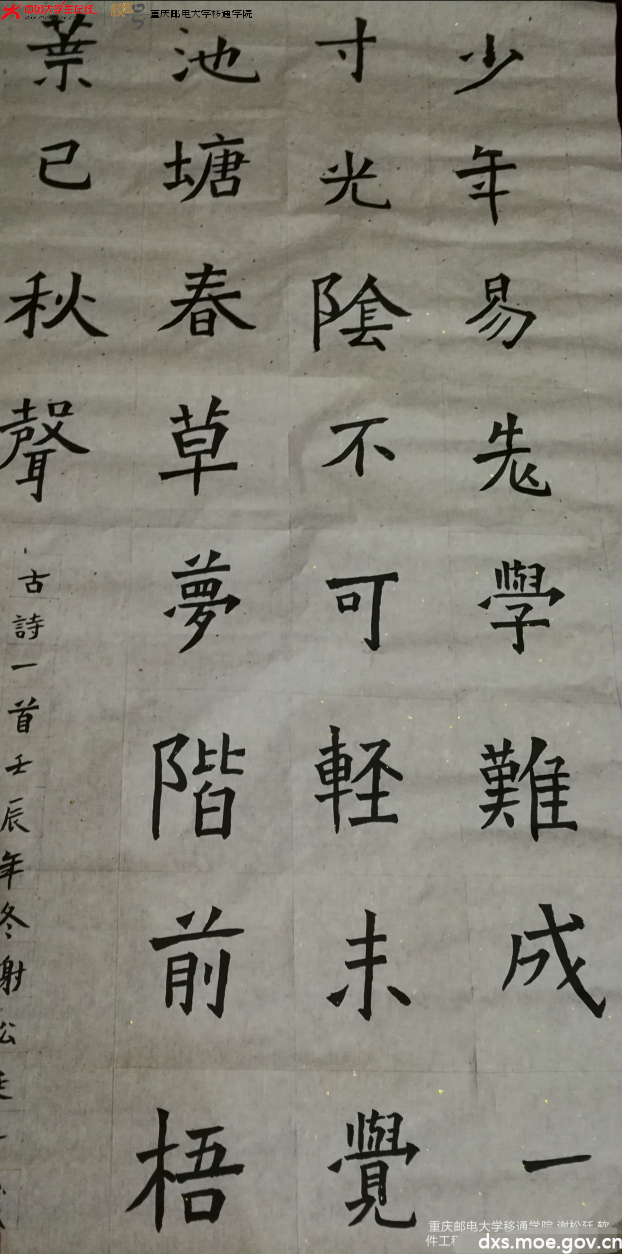 中国大学生在线
重庆邮电大学移通学院
少年易老學難成一
寸光陰不可軽未覺
池塘春草夢階前梧
葉已秋聲
古詩一首壬辰年冬謝松
重庆邮电大学移通学院 谢松廷 软
件工程
dxs.moe.gov.cn